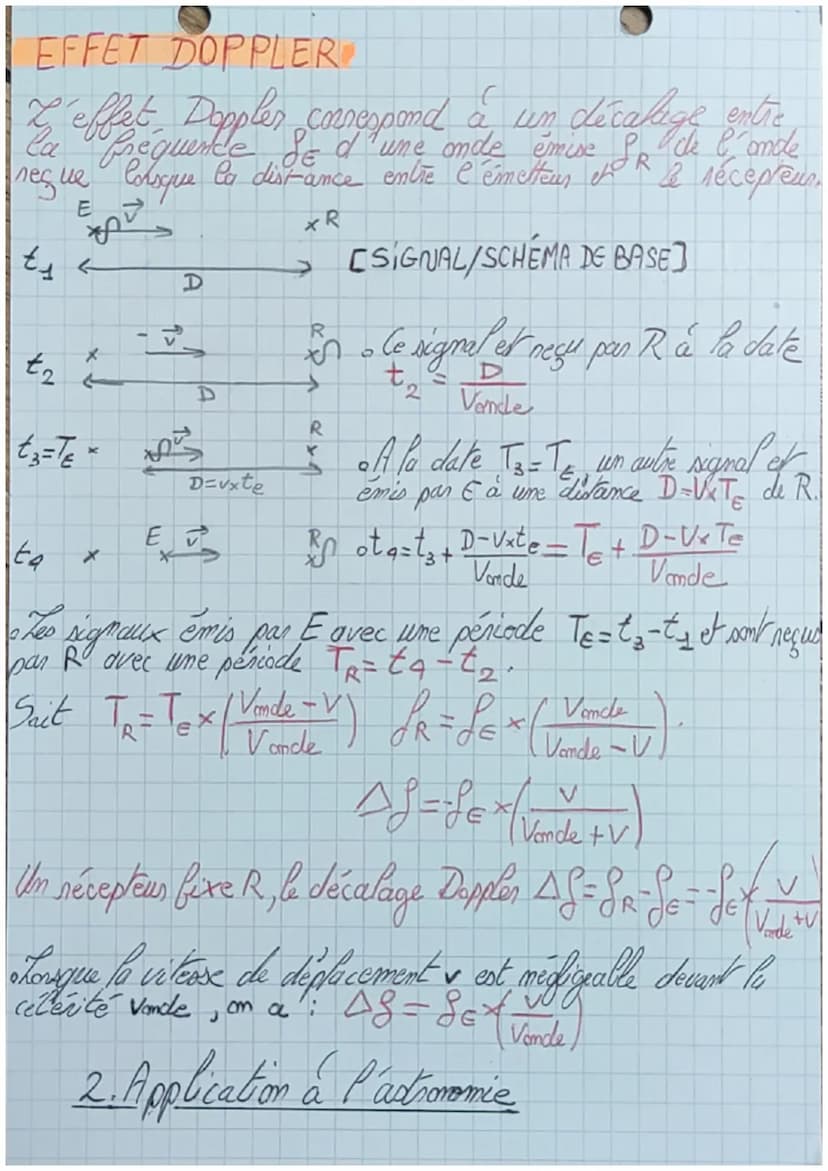 EFFET DOPPLER
L'effet Doppler correspond à un décalage entre
la fréquence fE d'une onde émise fR de l'onde
reçue lorsque la distance entre l'émetteur et le récepteur.
E v→ × R
t1 D [SIGNAL/SCHÉMA DE BASE]
t2 × - v→ R D • Ce signal et reçu par R à la date
t2 = D/Vonde
t3=TE × v→ R • A la date T3=TE, un autre signal et
D=v×te émis par E à une distance D=V×TE de R.
t4 × E v→ R • t4=t3+ (D-V×te)/Vonde = TE + (D-V×TE)/Vonde
• Les signaux émis par E avec une période TE=t3-t1 et sont reçus
par R avec une période TR=t4-t2.
Soit TR=TE×((Vonde-V)/Vonde) fR=fE×(Vonde/(Vonde-V)).
Δf=-fE×(V/(Vonde+V))
Un récepteur fixe R, le décalage Doppler Δf=fR-fE=-fE×(V/(Vonde+V))
• Lorsque la vitesse de déplacement v est négligeable devant la
célérité Vonde, on a : Δf=fE×(V/Vonde)
2. Application à l'astronomie